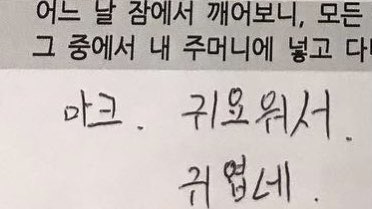 어느 날 잠에서 깨어보니, 모든
그 중에서 내 주머니에 넣고 다
마크. 귀요워서.
귀엽네.